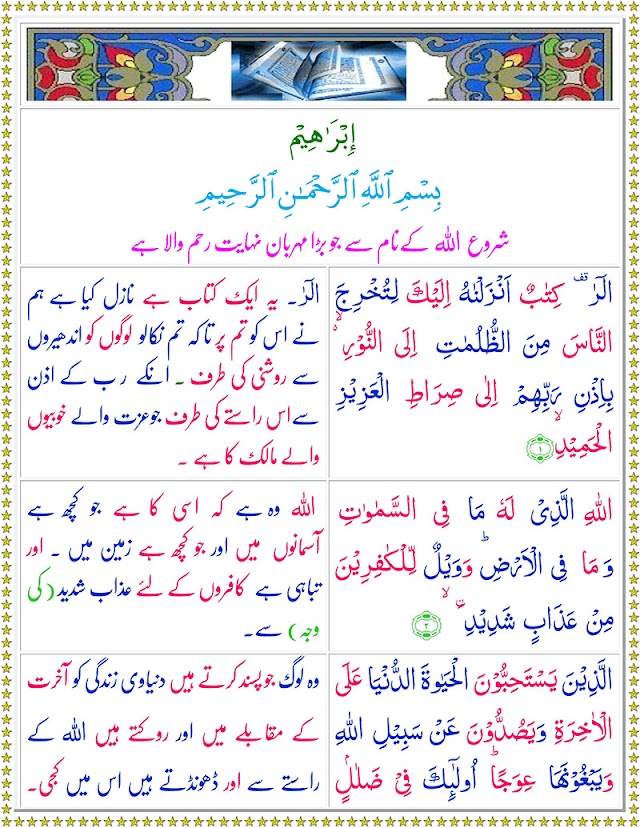 إِبْرَاهِيْم
بِسْمِ ٱللَّهِ ٱلرَّحْمَـٰنِ ٱلرَّحِيمِ
شروع اللہ کے نام سے جو بڑا مہربان نہایت رحم والا ہے
الٓرٰ ۟ قف كِتٰبٌ اَنْزَلْنٰهُ اِلَيْكَ لِتُخْرِجَ
النَّاسَ مِنَ الظُّلُمٰتِ اِلَى النُّوْرِ ۙ
بِاِذْنِ رَبِّهِمْ اِلٰى صِرَاطِ الْعَزِيْزِ
الْحَمِيْدِ ۙ ۝۱
الٓرٰ۔ یہ ایک کتاب ہے نازل کیا ہے ہم
نے اس کو تم پر تاکہ تم نکالو لوگوں کو اندھیروں
سے روشنی کی طرف ۔ انکے رب کے اذن
سے اس راستے کی طرف جو عزت والے خوبیوں
والے مالک کا ہے ۔
اللهِ الَّذِىْ لَهٗ مَا فِى السَّمٰوٰتِ
وَ مَا فِى الْاَرْضِ ؕ وَ وَيْلٌ لِّلْكٰفِرِيْنَ
مِنْ عَذَابٍ شَدِيْدِ ۙ ۝۲
اللہ وہ ہے کہ اسی کا ہے جو کچھ ہے
آسمانوں میں اور جو کچھ ہے زمین میں ۔ اور
تباہی ہے کافروں کے لئے عذاب شدید (کی
وجہ) سے۔
الَّذِيْنَ يَسْتَحِبُّوْنَ الْحَيٰوةَ الدُّنْيَا عَلَى
الْاٰخِرَةِ وَيَصُدُّوْنَ عَنْ سَبِيْلِ اللهِ
وَيَبْغُوْنَهَا عِوَجًا ؕ اُولٰٓئِكَ فِىْ ضَلٰلٍۭ
وہ لوگ جو پسند کرتے ہیں دنیاوی زندگی کو آخرت
کے مقابلے میں اور روکتے ہیں اللہ کے
راستے سے اور ڈھونڈتے ہیں اس میں کجی۔